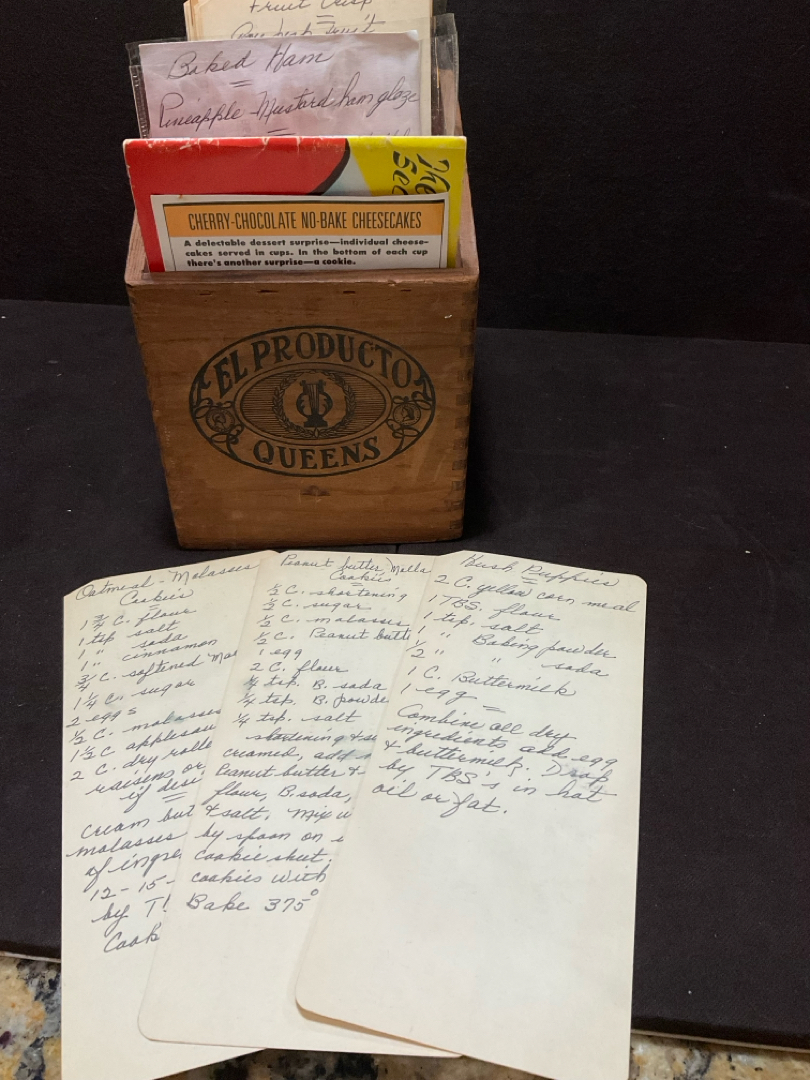 Fruit Crisp
Fruit
Baked Ham
Pineapple Mustard ham glaze
The
CHERRY-CHOCOLATE NO-BAKE CHEESECAKES
A delectable dessert surprise—individual cheese-
cakes served in cups. In the bottom of each cup
there's another surprise—a cookie.
EL PRODUCTO
QUEENS
Oatmeal - Molasses
Cookies
1 3/4 C. flour
1 tsp salt
1 " soda
1 " cinnamon
3/4 C. softened
1 1/4 C. sugar
2 eggs
1/2 C. molasses
1 1/2 C applesau
2 C. dry rolle
raisens or
if desi
Cream but
molasses
of ingre
12 - 15 -
by T
Cook
Peanut butter Molla
Cookies
1/2 C. shortening
1/2 C. sugar
1/2 C. molasses
1/2 C. Peanut butt
1 egg
2 C. flour
1/4 tsp. B. soda
1/4 tsp. B. powde
1/4 tsp. salt
shortening & su
creamed, add
Peanut butter &
flour, B. soda,
& salt. Mix w
by spoon on
cookie sheet.
cookies with
Bake 375°
Hush Puppies
2 C. yellow corn meal
1 TBS. flour
1 tsp. salt
1 " Baking powder
1/2 " " soda
1 C. Buttermilk
1 egg
Combine all dry
ingredients add egg
& buttermilk. Drop
by TBS's in hot
oil or fat.